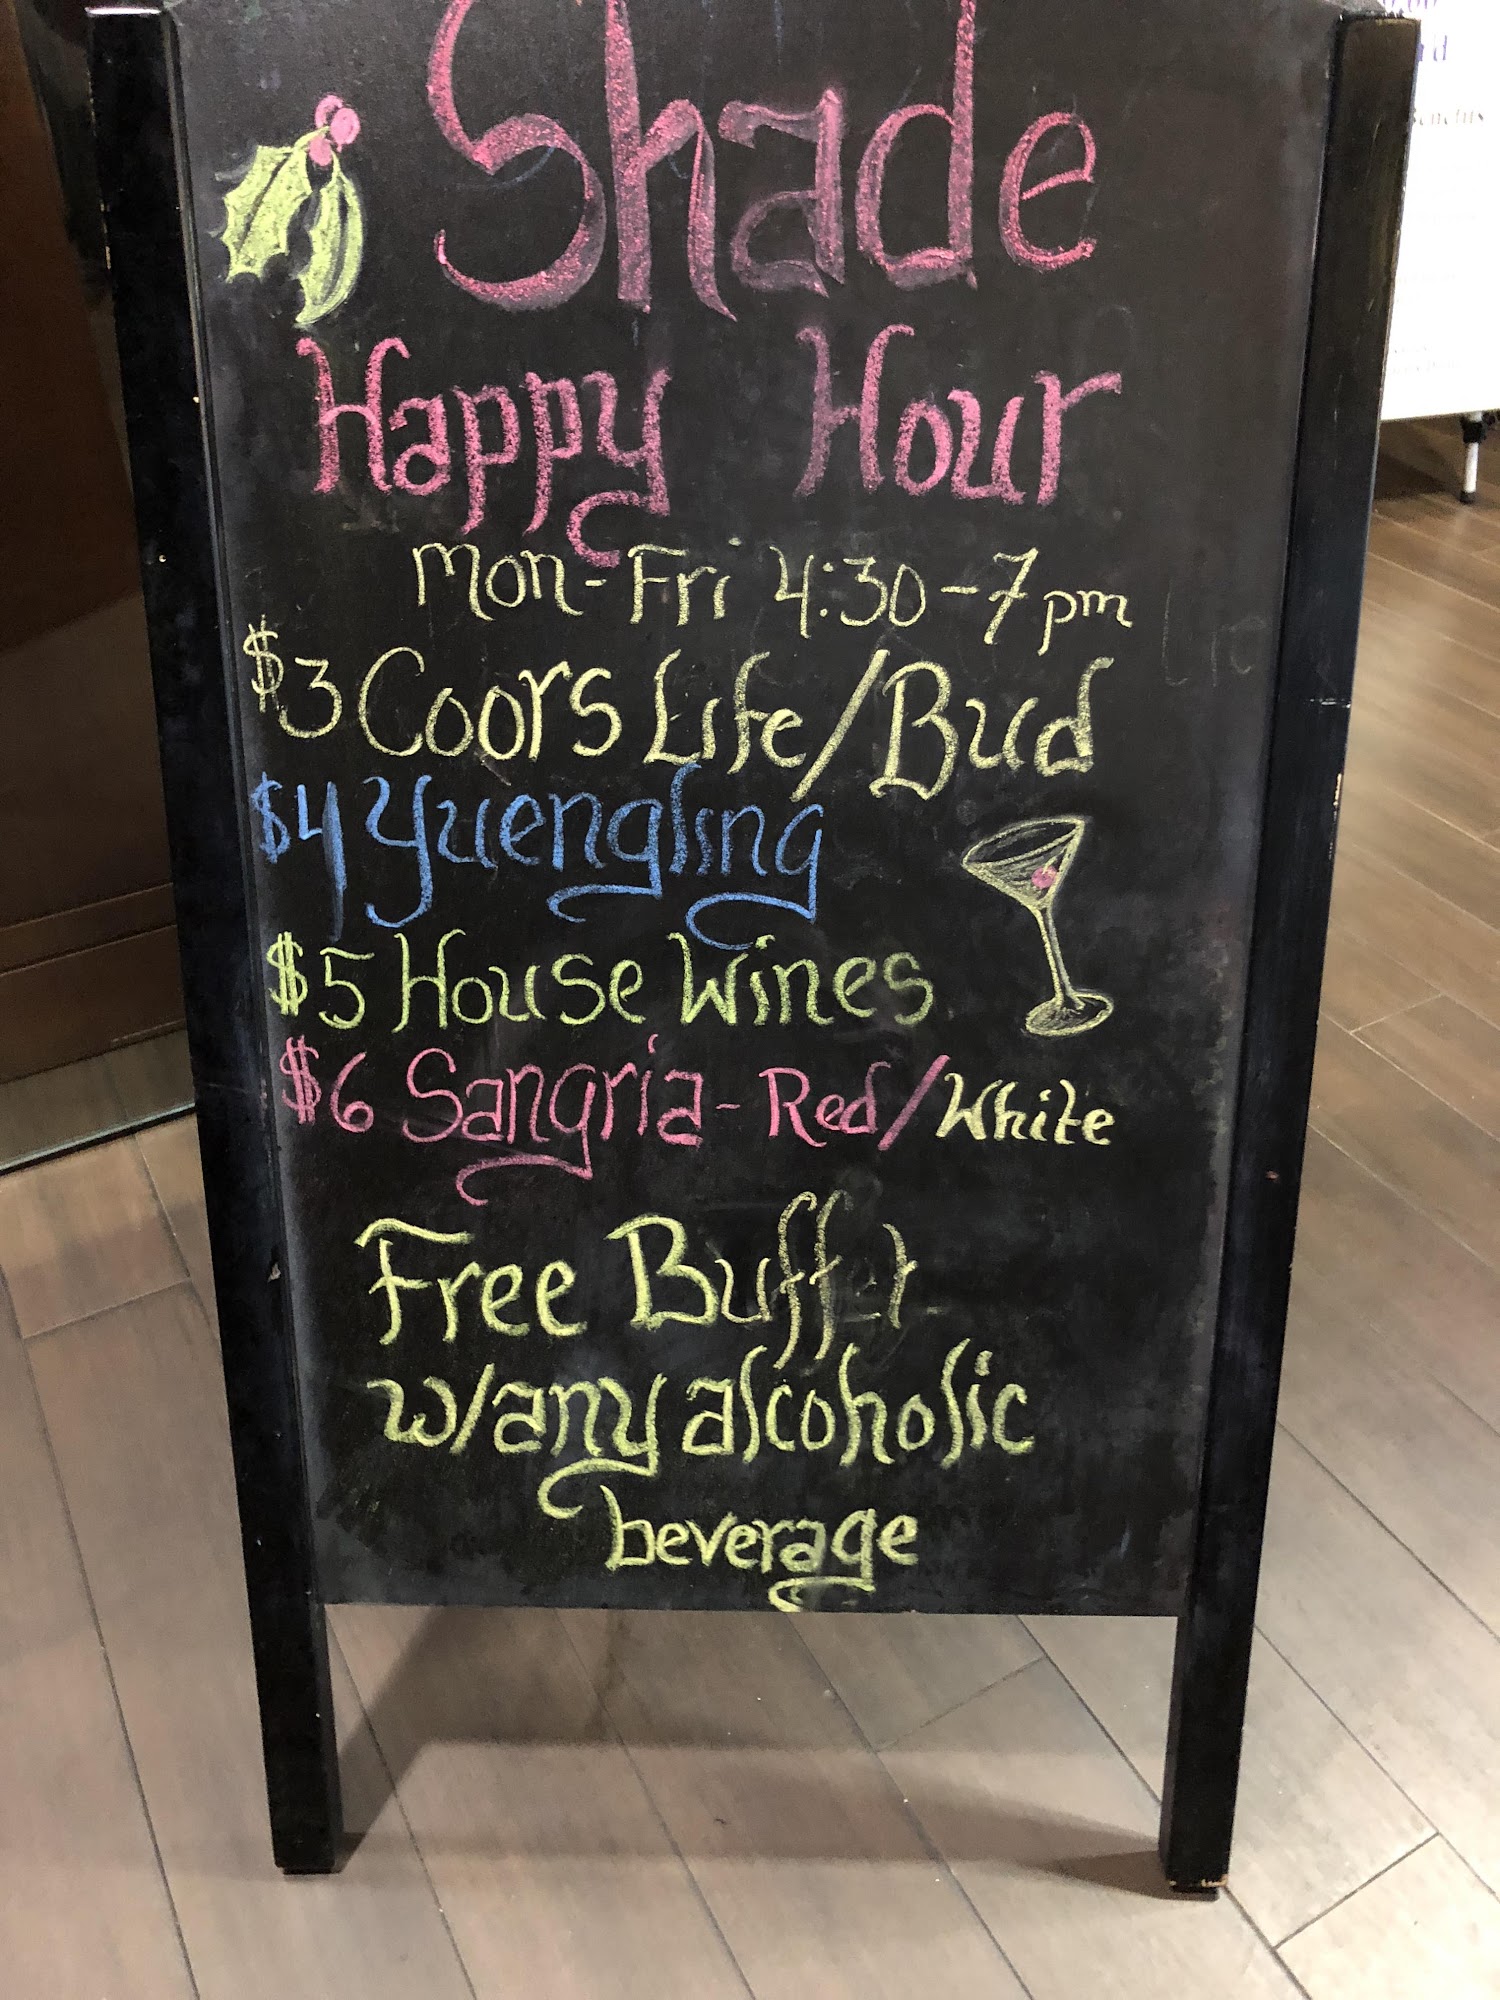 Shade
Happy Hour
Mon-Fri 4:30-7pm
$3 Coors Life/Bud
$4 Yuengling
$5 House Wines
$6 Sangria - Red/White
Free Buffet
w/any alcoholic
beverage